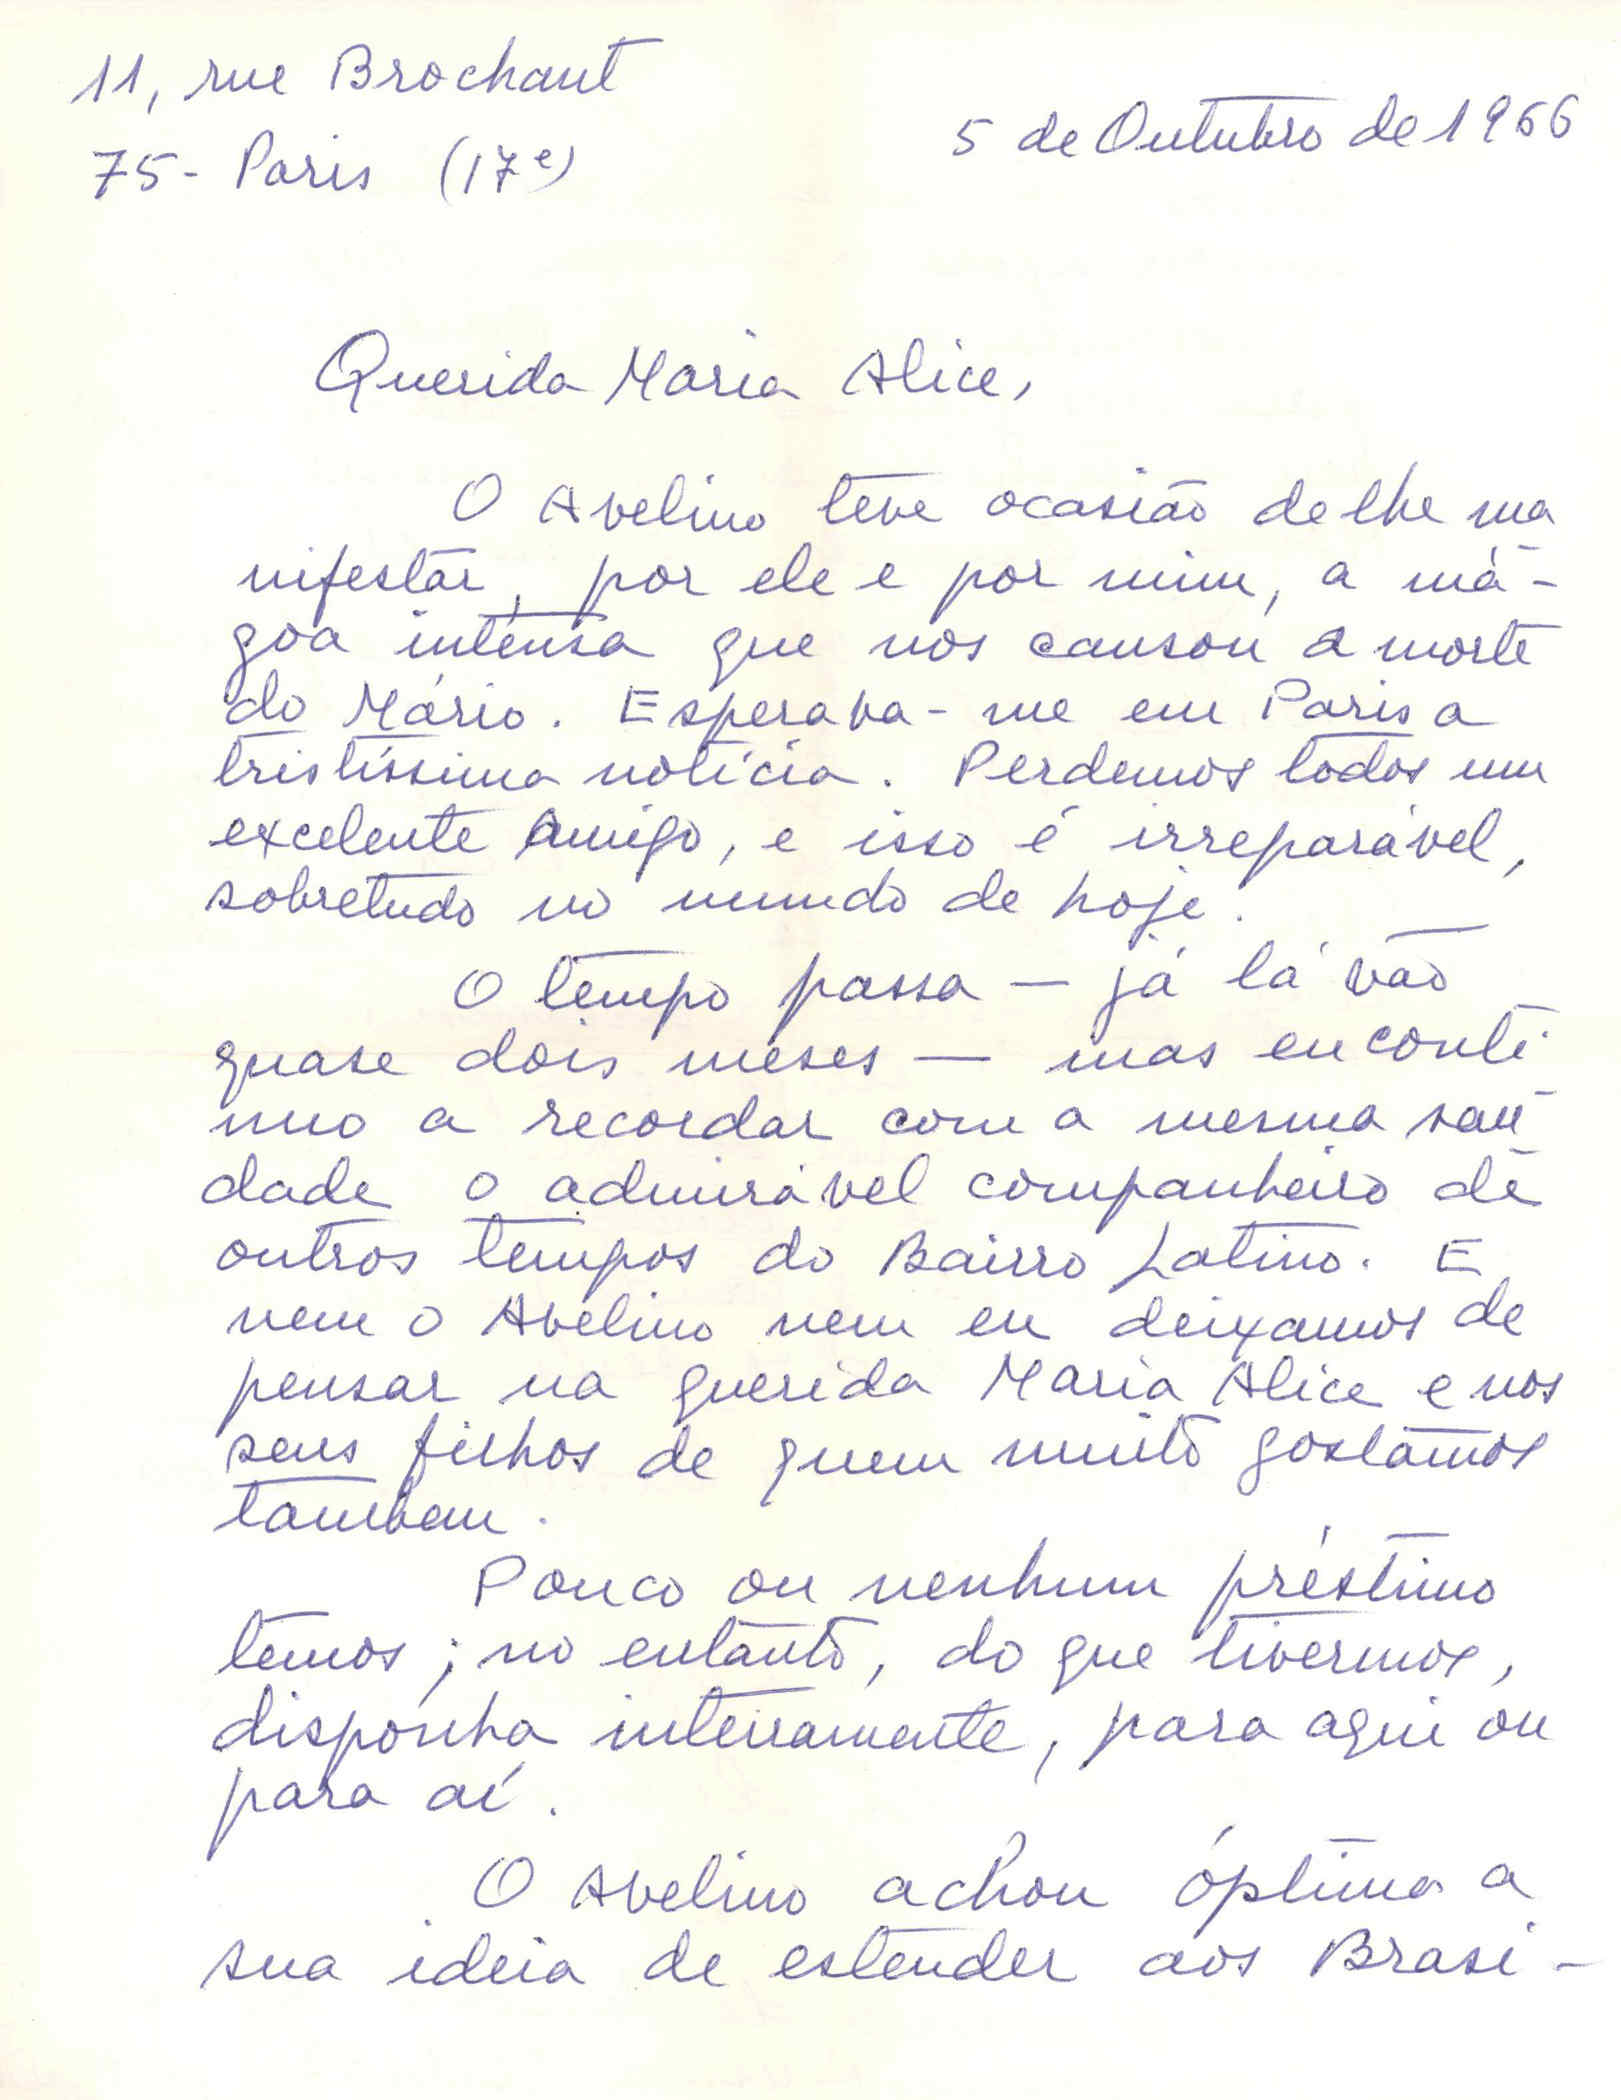 11, rue Brochant
75 - Paris (17e)
5 de Outubro de 1966
Querida Maria Alice,
O Avelino teve ocasião de lhe ma
nifestar, por ele e por mim, a má-
goa intensa que nos causou a morte
do Mário. Esperava-me em Paris a
tristíssima notícia. Perdemos todos um
excelente Amigo, e isso é irreparável,
sobretudo no mundo de hoje.
O tempo passa — já lá vão
quase dois meses — mas eu conti-
nuo a recordar com a mesma sau-
dade o admirável companheiro de
outros tempos do Bairro Latino. E
nem o Avelino nem eu deixamos de
pensar na querida Maria Alice e nos
seus filhos de quem muito gostamos
tambem.
Pouco ou nenhum préstimo
temos; no entanto, do que tivermos,
disponha inteiramente, para aqui ou
para aí.
O Avelino achou óptima a
sua ideia de estender aos Brasi-